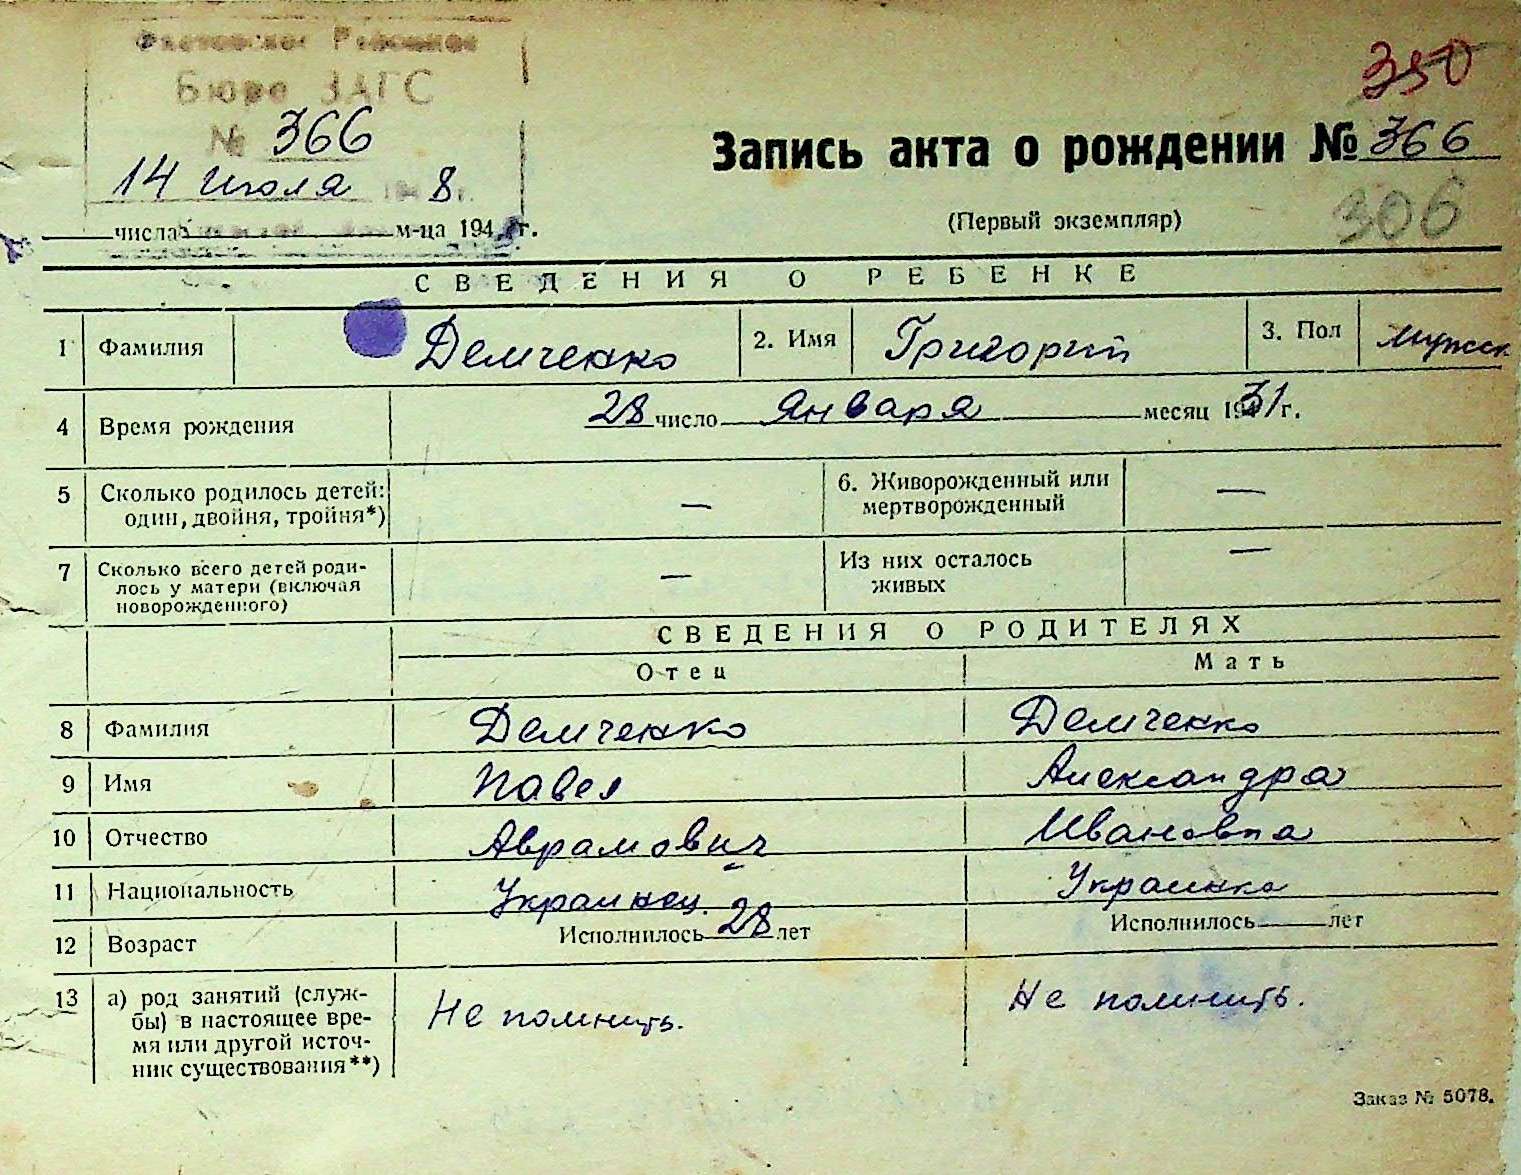 Районное
350
Бюро ЗАГС
№ 366
14 июля 8 г.
числа м-ца 194 г.
Запись акта о рождении № 366
(Первый экземпляр)
306
СВЕДЕНИЯ О РЕБЕНКЕ
1 Фамилия Демченко 2. Имя Григорий 3. Пол мужск
4 Время рождения 28 число Января месяц 1931 г.
5 Сколько родилось детей: — 6. Живорожденный или —
один, двойня, тройня*) мертворожденный
7 Сколько всего детей роди- — Из них осталось —
лось у матери (включая живых
новорожденного)
СВЕДЕНИЯ О РОДИТЕЛЯХ
Отец Мать
8 Фамилия Демченко Демченко
9 Имя Павел Александра
10 Отчество Аврамович Ивановна
11 Национальность Украинец. Украинка
12 Возраст Исполнилось 28 лет Исполнилось лет
13 а) род занятий (служ- Не помнить. Не помнить.
бы) в настоящее вре-
мя или другой источ-
ник существования**)
Заказ № 5078.